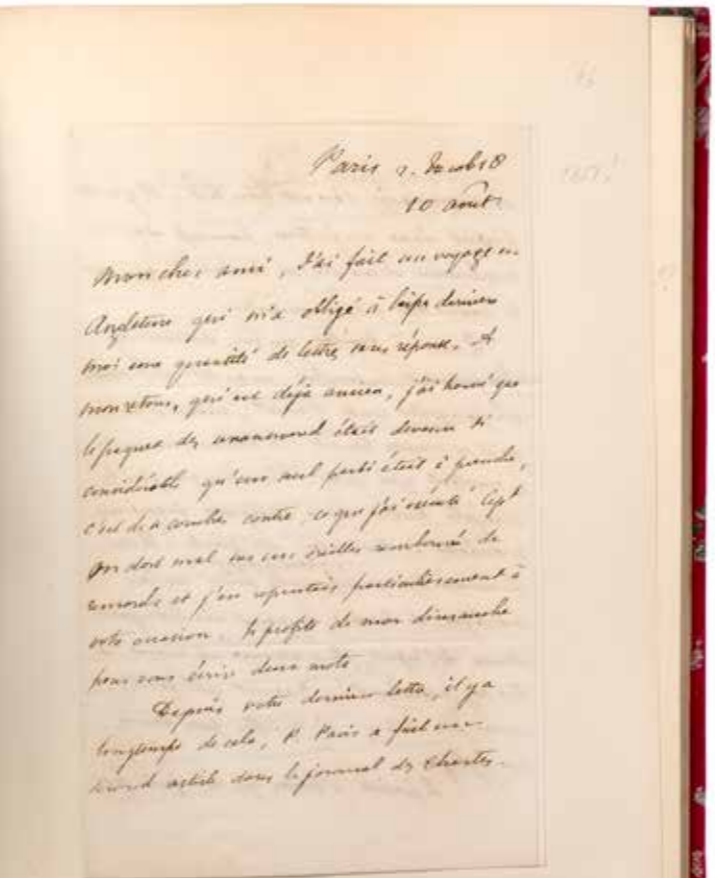 Paris
10 août
Mon cher ami, j'ai fait un voyage en
Angleterre qui m'a obligé à laisser derrière
moi une quantité de lettres sans réponse. A
mon retour, qui est déjà ancien, j'ai trouvé que
le paquet des unanswered était devenu si
considérable qu'un seul parti était à prendre,
c'est de contre, ce que j'ai exécuté
on dort mal sur un oreiller rembourré de
remords et j'en repentais particulièrement à
votre occasion. Je profite de mon dimanche
pour vous écrire deux mots
Depuis votre dernière lettre, il y a
longtemps de cela, P. Paris a fait un
second article dans le journal des Chartes.